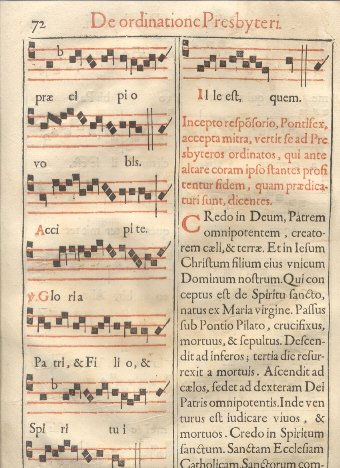 72 De ordinatione Presbyteri.
præ ci pi o
vo bis.
Acci pi te.
℣. Glo ria
Pa tri, & Fi li o, &
Spi ri tu i
Il le est, quem.
Incepto respōsorio, Pontifex,
accepta mitra, vertit se ad Pre
sbyteros ordinatos, qui ante
altare coram ipso stantes profi
tentur fidem, quam prædica-
turi sunt, dicentes.
CRedo in Deum, Patrem
omnipotentem, creato-
rem cæli, & terræ. Et in Iesum
Christum filium eius vnicum
Dominum nostrum. Qui con
ceptus est de Spiritu sancto,
natus ex Maria virgine. Passus
sub Pontio Pilato, crucifixus,
mortuus, & sepultus. Descen-
dit ad inferos; tertia die resur-
rexit a mortuis. Ascendit ad
cælos, sedet ad dexteram Dei
Patris omnipotentis. Inde ven
turus est iudicare viuos, &
mortuos. Credo in Spiritum
sanctum. Sanctam Ecclesiam
Catholicam. Sanctorum com-